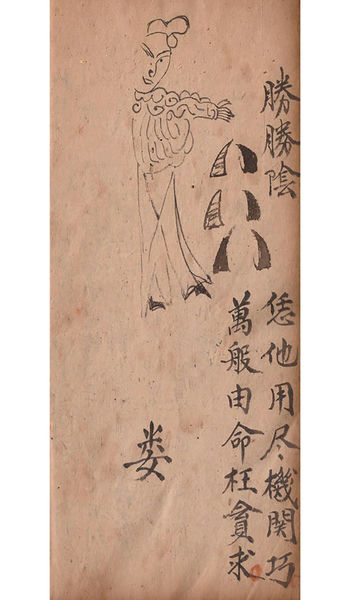 勝勝陰
恁他用尽機関巧
萬般由命枉貪求
娄